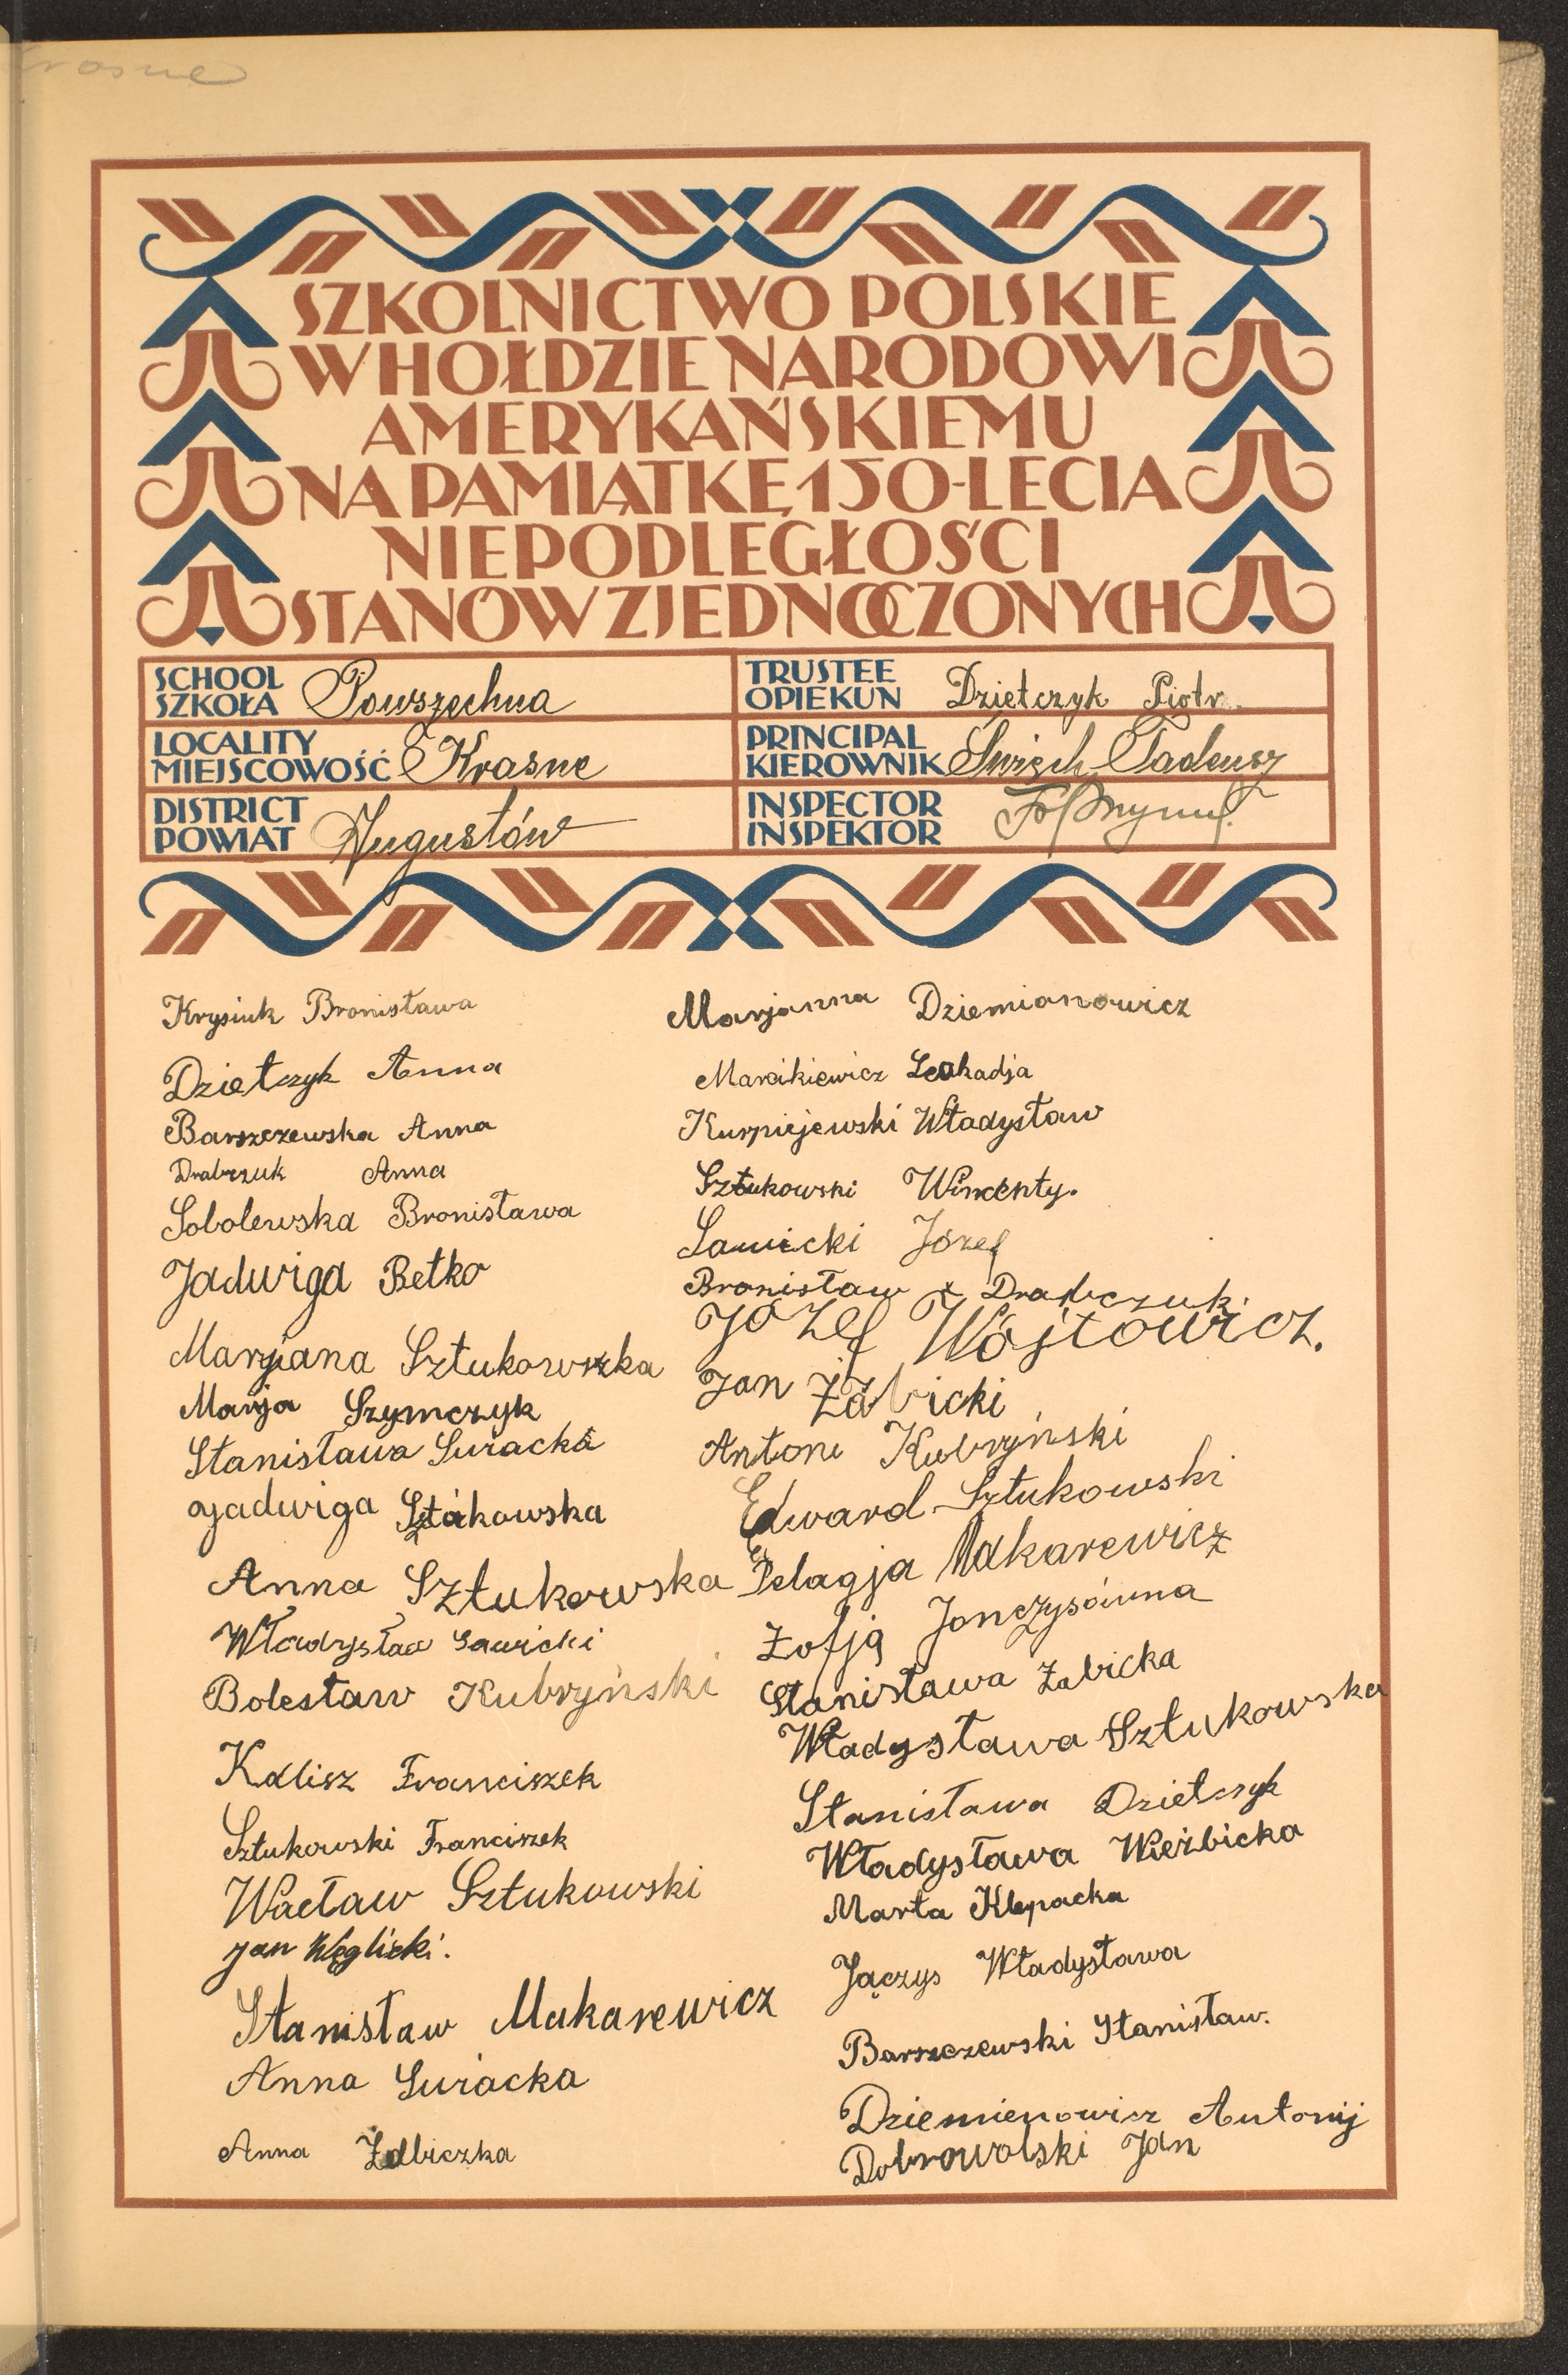 Krasne
SZKOLNICTWO POLSKIE
W HOŁDZIE NARODOWI
AMERYKAŃSKIEMU
NA PAMIĄTKĘ 150-LECIA
NIEPODLEGŁOŚCI
STANÓW ZJEDNOCZONYCH
SCHOOL
SZKOŁA Powszechna
LOCALITY
MIEJSCOWOŚĆ Krasne
DISTRICT
POWIAT Augustów
TRUSTEE
OPIEKUN Dzietczyk Piotr
PRINCIPAL
KIEROWNIK Święch Tadeusz
INSPECTOR
INSPEKTOR
Krysiuk Bronisława
Dzietczyk Anna
Barszczewska Anna
Drabczuk Anna
Sobolewska Bronisława
Jadwiga Betko
Marjana Sztukowszka
Marja Szymczyk
Stanisława Suracka
Jadwiga Sztukowska
Anna Sztukowska
Władysław Sawicki
Bolesław Kubryński
Kalisz Franciszek
Sztukowski Franciszek
Wacław Sztukowski
Jan Węglicki.
Stanisław Makarewicz
Anna Suracka
Anna Żabiczka
Marjanna Dziemianowicz
Marcikiewicz Leokadja
Kurpiejewski Władysław
Sztukowski Wincenty.
Sawicki Józef
Bronisław Drabczuk.
Józef Wójtowicz.
Jan Żabicki
Antoni Kubryński
Edward Sztukowski
Pelagja Makarewicz
Zofja Jonczysówna
Stanisława Żabicka
Władysława Sztukowska
Stanisława Dzietczyk
Władysława Wieżbicka
Marta Klepacka
Jączys Władysława
Barszczewski Stanisław.
Dziemienowicz Antonij
Dobrowolski Jan